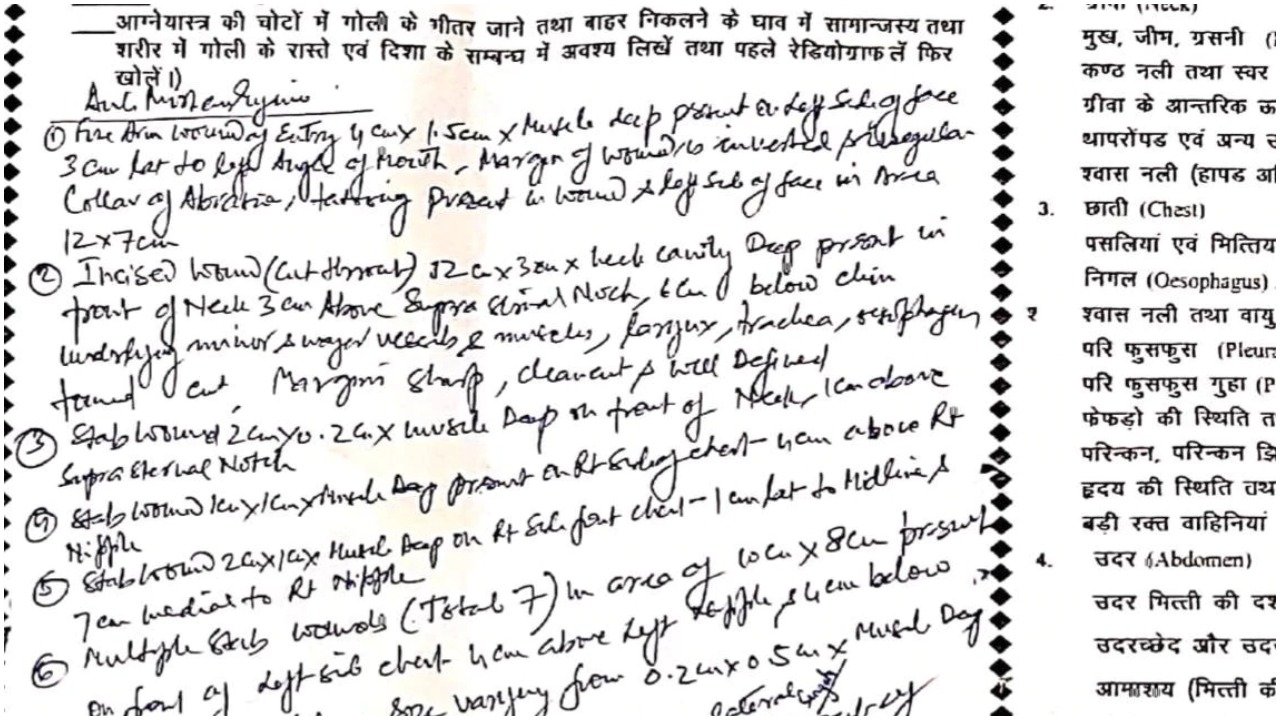 आग्नेयास्त्र की चोटों में गोली के भीतर जाने तथा बाहर निकलने के घाव में सामान्जस्य तथा
शरीर में गोली के रास्ते एवं दिशा के सम्बन्ध में अवश्य लिखें तथा पहले रेडियोग्राफ लें फिर
खोलें।)
① Fire Arm wound of Entry 4 cm x 1.5cm x Muscle deep present on left side of face
3 cm lat to left Angle of Mouth, Margin of wound is inverted & irregular
Collar of Abrasion, tattooing present in wound & left side of face in Area
12 x 7cm
② Incised wound (Cut throat) 12 cm x 3 cm x neck cavity Deep present in
front of Neck 3 cm Above Supra Sternal Notch, 6 cm below chin
underlying minor & major vessels & muscles, larynx, trachea, oesophagus
found cut Margins sharp, cleancut & well Defined
③ Stab wound 2 cm x 0.2 cm x muscle Deep on front of Neck, 1 cm above
Supra Sternal Notch
④ Stab wound 1cm x 1cm x Muscle deep present on Rt Side of chest - 4 cm above Rt
Nipple
⑤ Stab wound 2 cm x 1 cm x Muscle deep on Rt Side front chest - 1 cm lat to Midline &
7 cm medial to Rt Nipple
⑥ Multiple Stab wounds (Total 7) in area of 10 cm x 8 cm present
on front of left side chest 4 cm above left nipple & 4 cm below
size varying from 0.2 cm x 0.5 cm x Muscle Deep
मुख, जीभ, ग्रसनी
कण्ठ नली तथा स्वर
ग्रीवा के आन्तरिक
थापरॉपड एवं अन्य
श्वास नली (हापड
3. छाती (Chest)
पसलियां एवं भित्तिय
निगल (Oesophagus)
२ श्वास नली तथा वायु
परि फुसफुस (Pleura
परि फुसफुस गुहा (P
फेफड़ो की स्थिति त
परिन्कन, परिन्कन झि
हृदय की स्थिति तथ
बड़ी रक्त वाहिनियां
4. उदर (Abdomen)
उदर भित्ती की दश
उदरच्छेद और उदर
आमाशय (भित्ती की